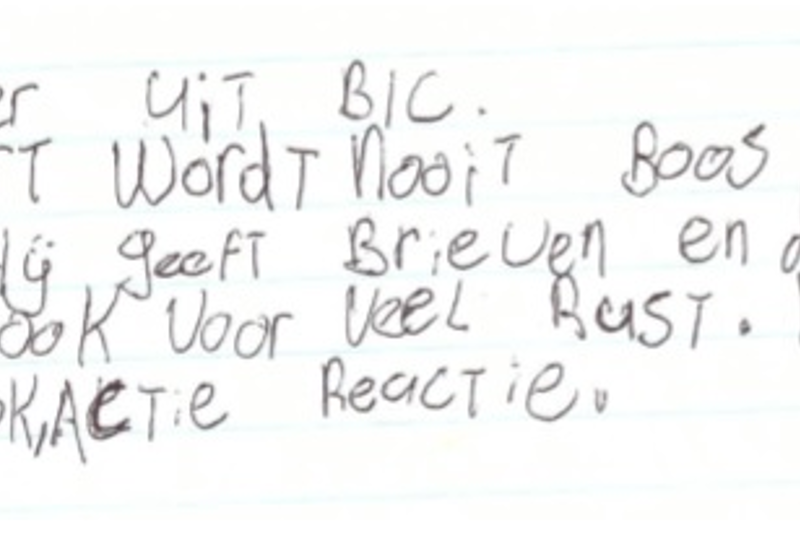 er uiT BIC.
RT WordT nooiT Boos
lij geefT Brieven en
ook voor veel RusT.
ok, AcTie ReacTie.